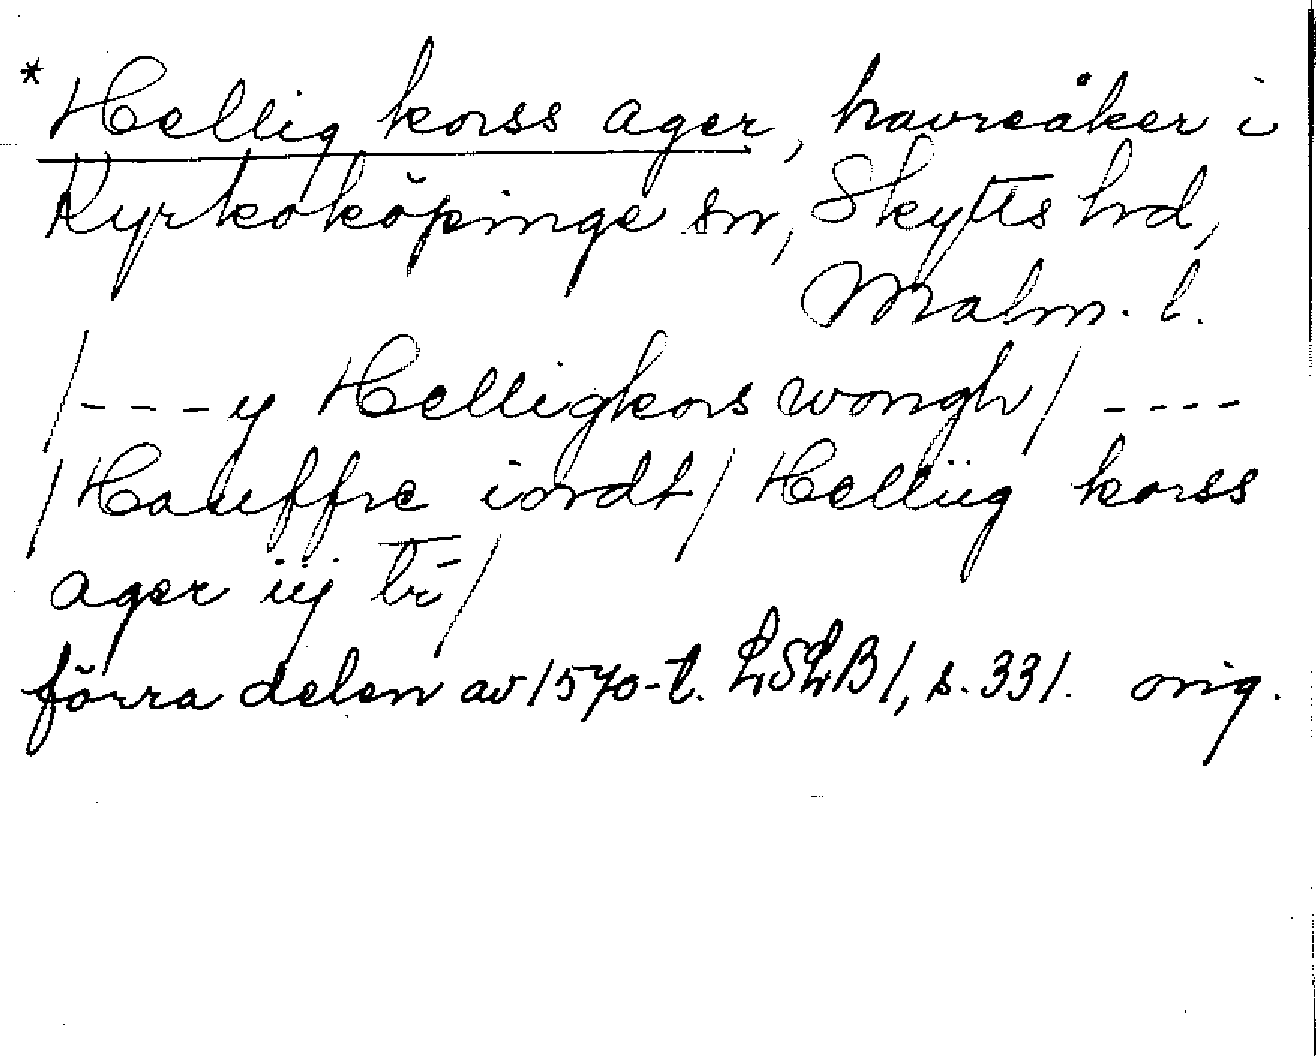 *Hellig korss ager, havreåker i
Kyrkoköpinge sn, Skytts hd,
Malm. l.
/---y Helligkors wongh/ ----
/Hauffre iordt/ Helliig korss
ager iij tr̄/
förra delen av 1570-t. LSLB1, s. 331. orig.